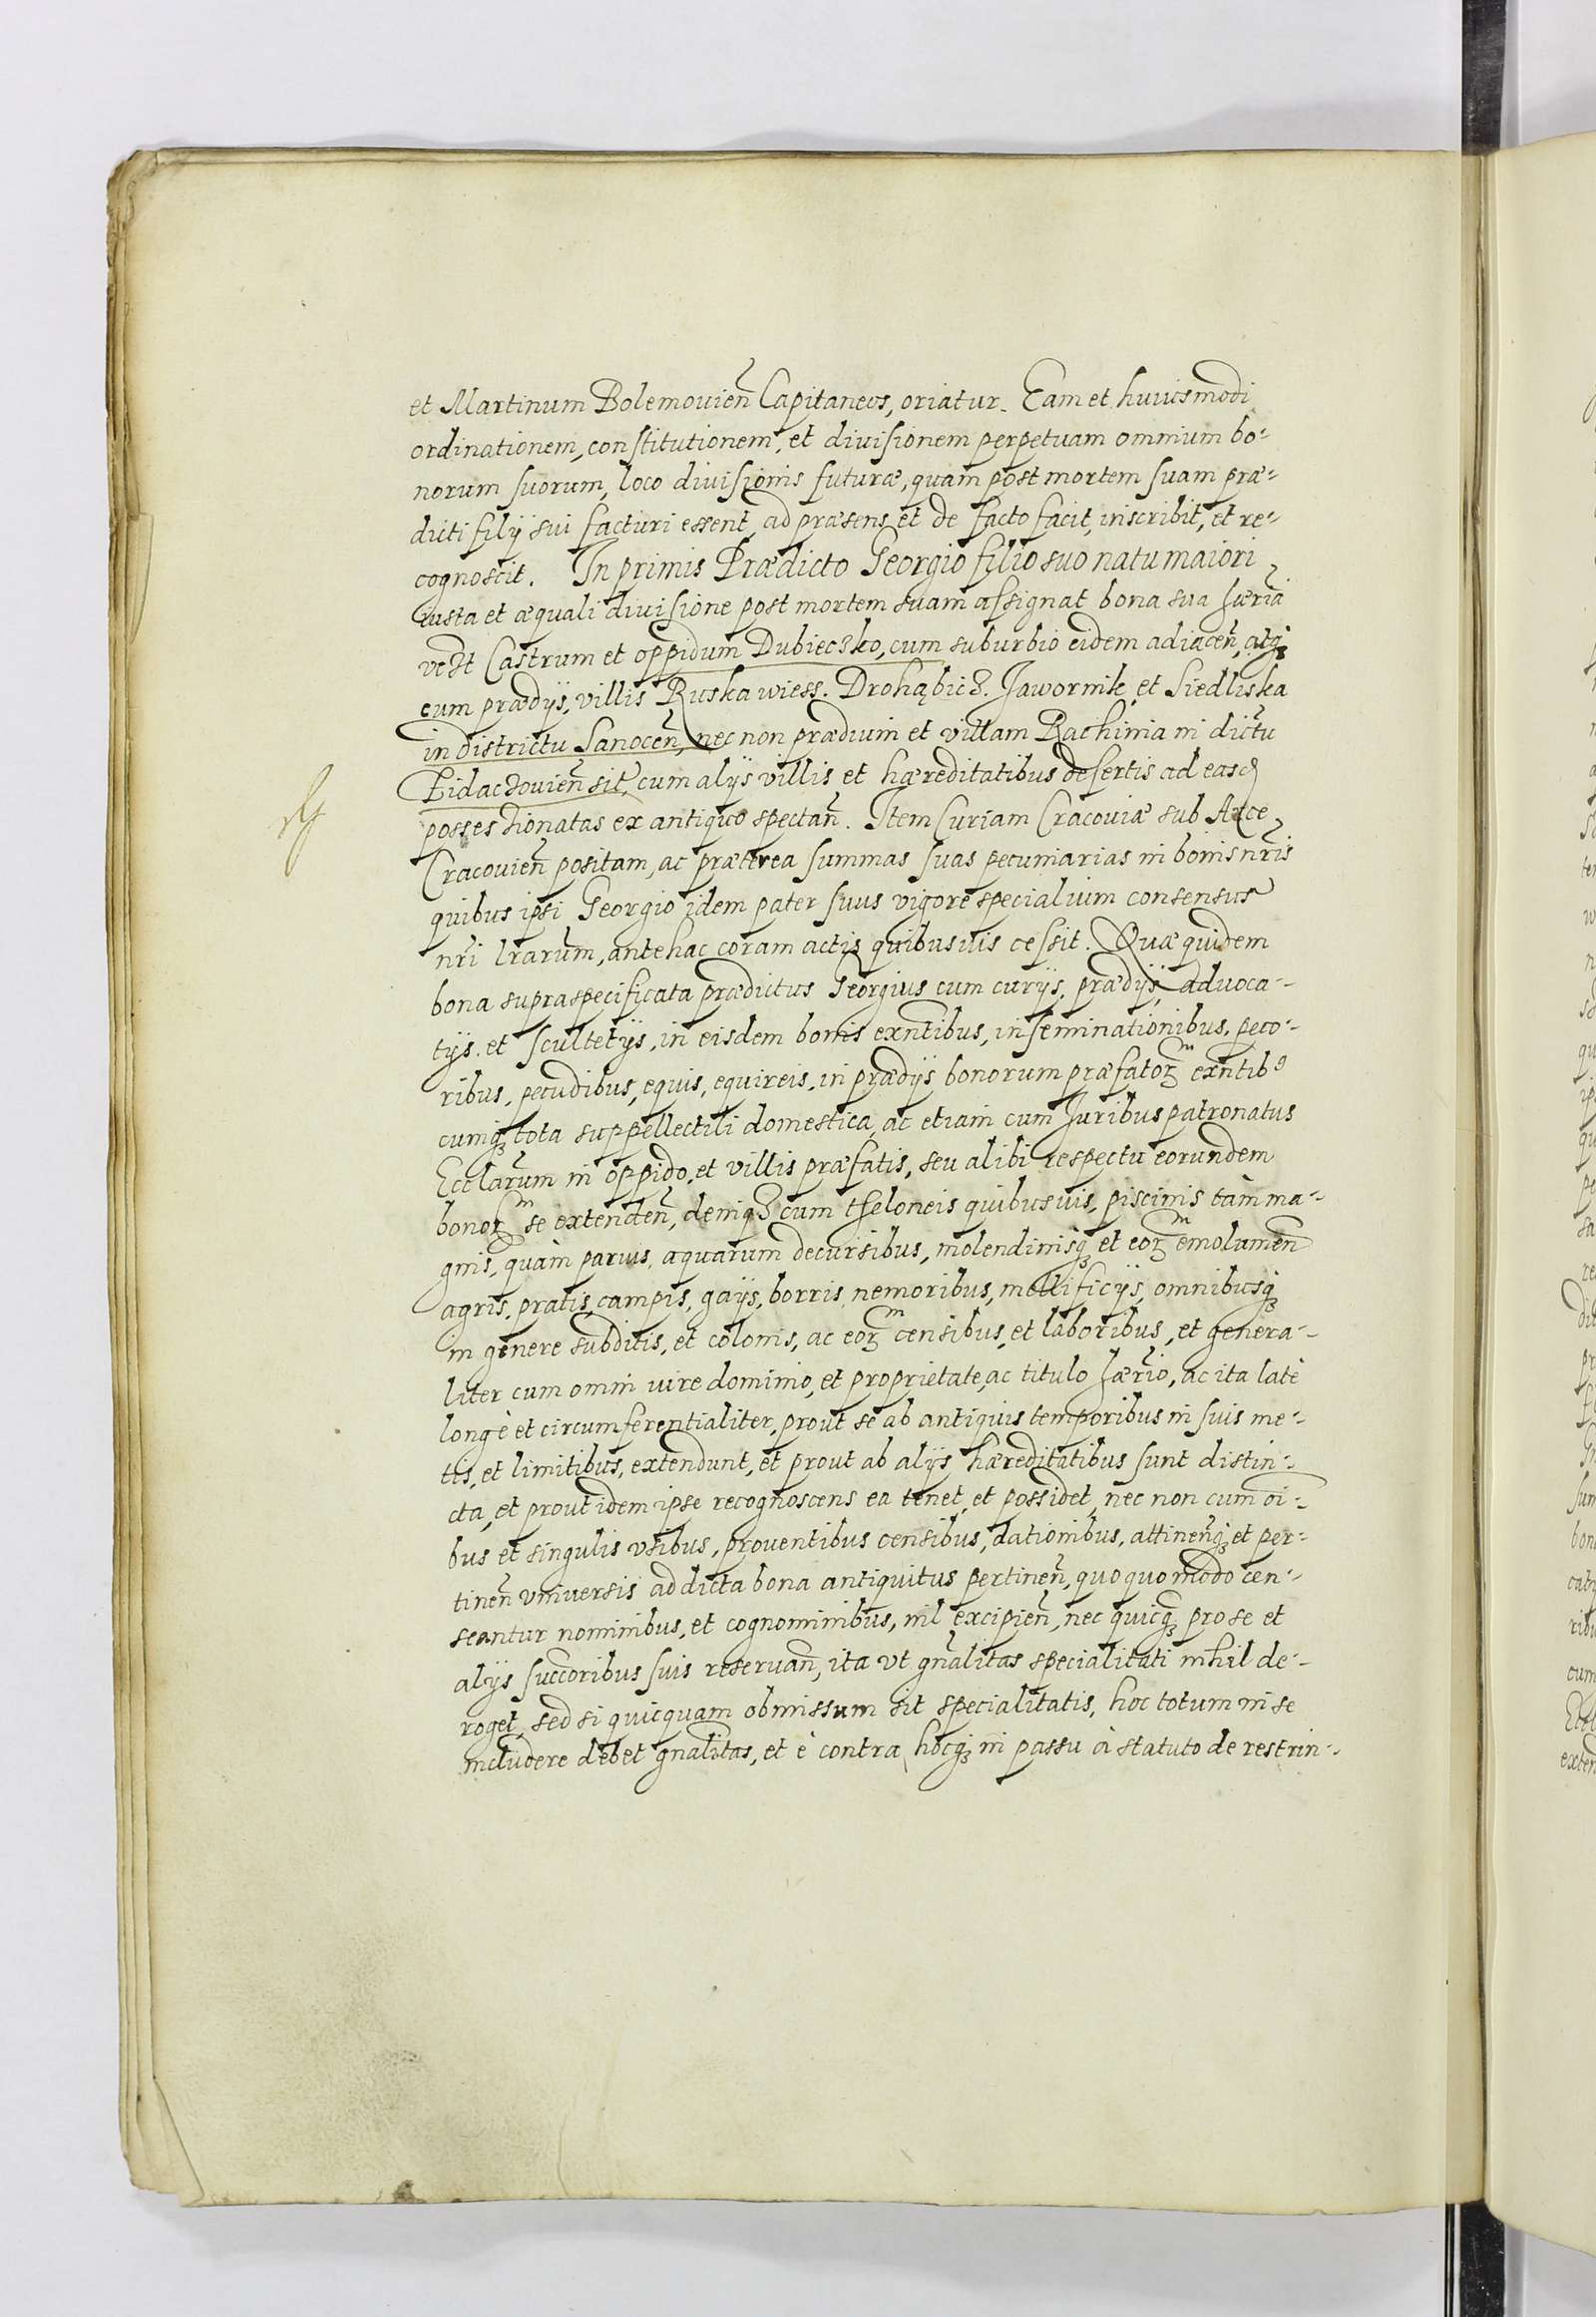 et Martinum Bolemouien̄ Capitaneos, oriatur. Eam et huiusmodi
ordinationem, constitutionem, et diuisionem perpetuam omnium bo-
norum suorum, loco diuisionis futuræ, quam post mortem suam præ-
dicti filÿ sui facturi essent, ad præsens et de facto facit, inscribit, et re-
cognoscit. In primis Prædicto Georgio filio suo natu maiori
iusta et æquali diuisione post mortem suam assignat bona sua hæria
vedzt Castrum et oppidum Dubieczko, cum suburbio eidem adiacen̄, atqз
cum prædÿs, villis Ruska wiess. Drohąbicz. Jawornik, et Siedliska
in districtu Sanocen̄, nec non prædium et villam Rachinia in dictu
Zidaczouien̄ sit, cum alÿs villis et hæreditatibus desertis ad easd
possessionatas ex antiquo spectan̄. Item Curiam Cracouiæ sub Arce
Cracouien̄ positam, ac præterea summas suas pecuniarias in bonis nr̄is
quibus ipsi Georgio idem pater suus vigore specialium consensus
nr̄i lrarum, antehac coram actis quibusuis cessit. Quæ quidem
bona supraspecificata prædictus Georgius cum curÿs, prædÿs, aduoca-
tÿs. et scultetÿs, in eisdem bonis exn̄tibus, inseminationibus, peco-
ribus, pecudibus, equis, equireis, in prædÿs bonorum præfatoꝝm exn̄tibꝰ
cumqз tota suppellectili domestica, ac etiam cum Juribus patronatus
Ecclarum in oppido, et villis præfatis, seu alibi respectu eorundem
bonoꝝm se extenden̄, deniqз cum theloneis quibusuis, piscinis tàm ma-
gnis, quàm paruis, aquarum decursibus, molendinisqз et eoꝝm emolumen̄
agris, pratis, campis, gaÿs, borris, nemoribus, mellificÿs, omnibusqз
in genere subditis, et colonis, ac eoꝝm censibus, et laboribus, et genera-
liter cum omni iure dominio, et proprietate, ac titulo hærio, ac ita latè
longè et circumferentialiter, prout se ab antiquis temporibus in suis me-
tis, et limitibus, extendunt, et prout ab alÿs hæreditatibus sunt distin-
cta, et prout idem ipse recognoscens ea tenet, et possidet, nec non cum oi-
bus et singulis vsibus, prouentibus censibus, dationibus, attinen̄qз et per-
tinen̄ vniversis ad dicta bona antiquitus pertinen̄, quoquomodo cen-
seantur nominibus, et cognominibus, nil excipien̄, nec quicqз pro se et
alÿs succoribus suis reseruan̄, ita vt gn̄alitas specialitati nihil de-
roget, sed si quicquam obmissum sit specialitatis, hoc totum in se
includere debet gnalitas, et è contra, hocqз in passu à statuto de restrin-